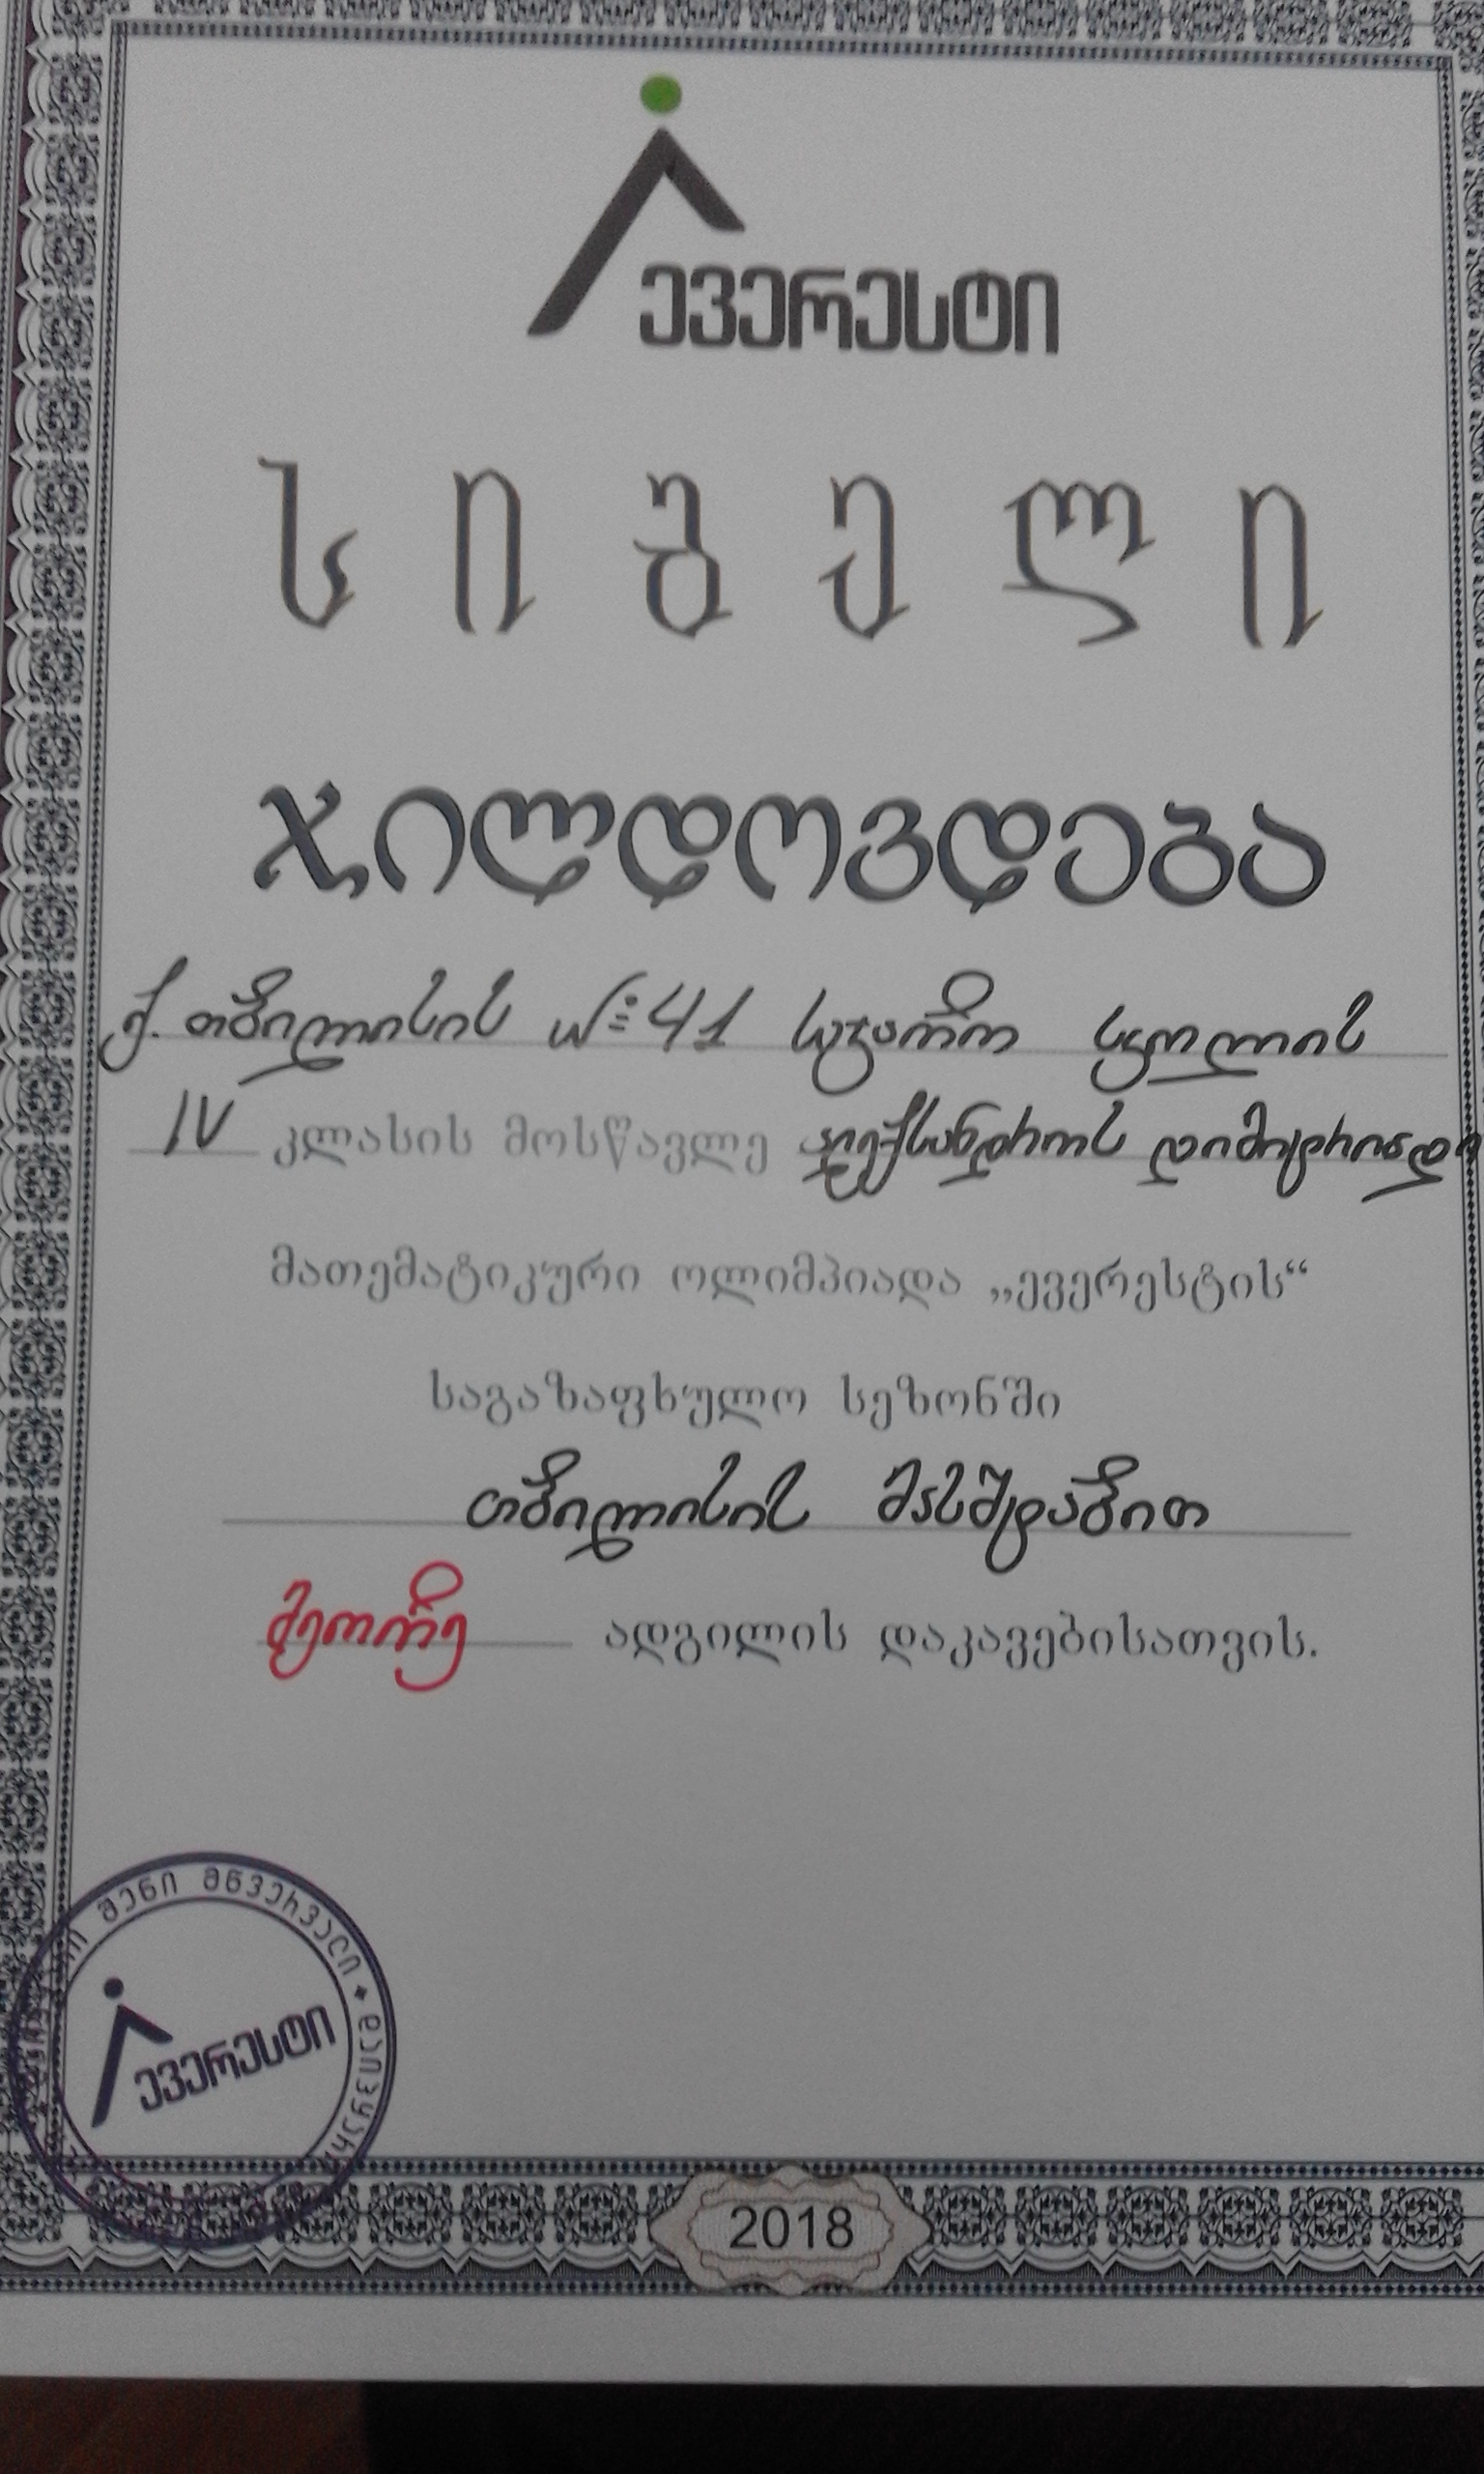 ევერესტი
სიგელი
ჯილდოვდება
ქ. თბილისის №41 საჯარო სკოლის
IV კლასის მოსწავლე ალექსანდროს დიმიტრიადი
მათემატიკური ოლიმპიადა „ევერესტის“
საგაზაფხულო სეზონში
თბილისის მასშტაბით
მეორე ადგილის დაკავებისათვის.
შენი მწვერვალი
ევერესტი
2018